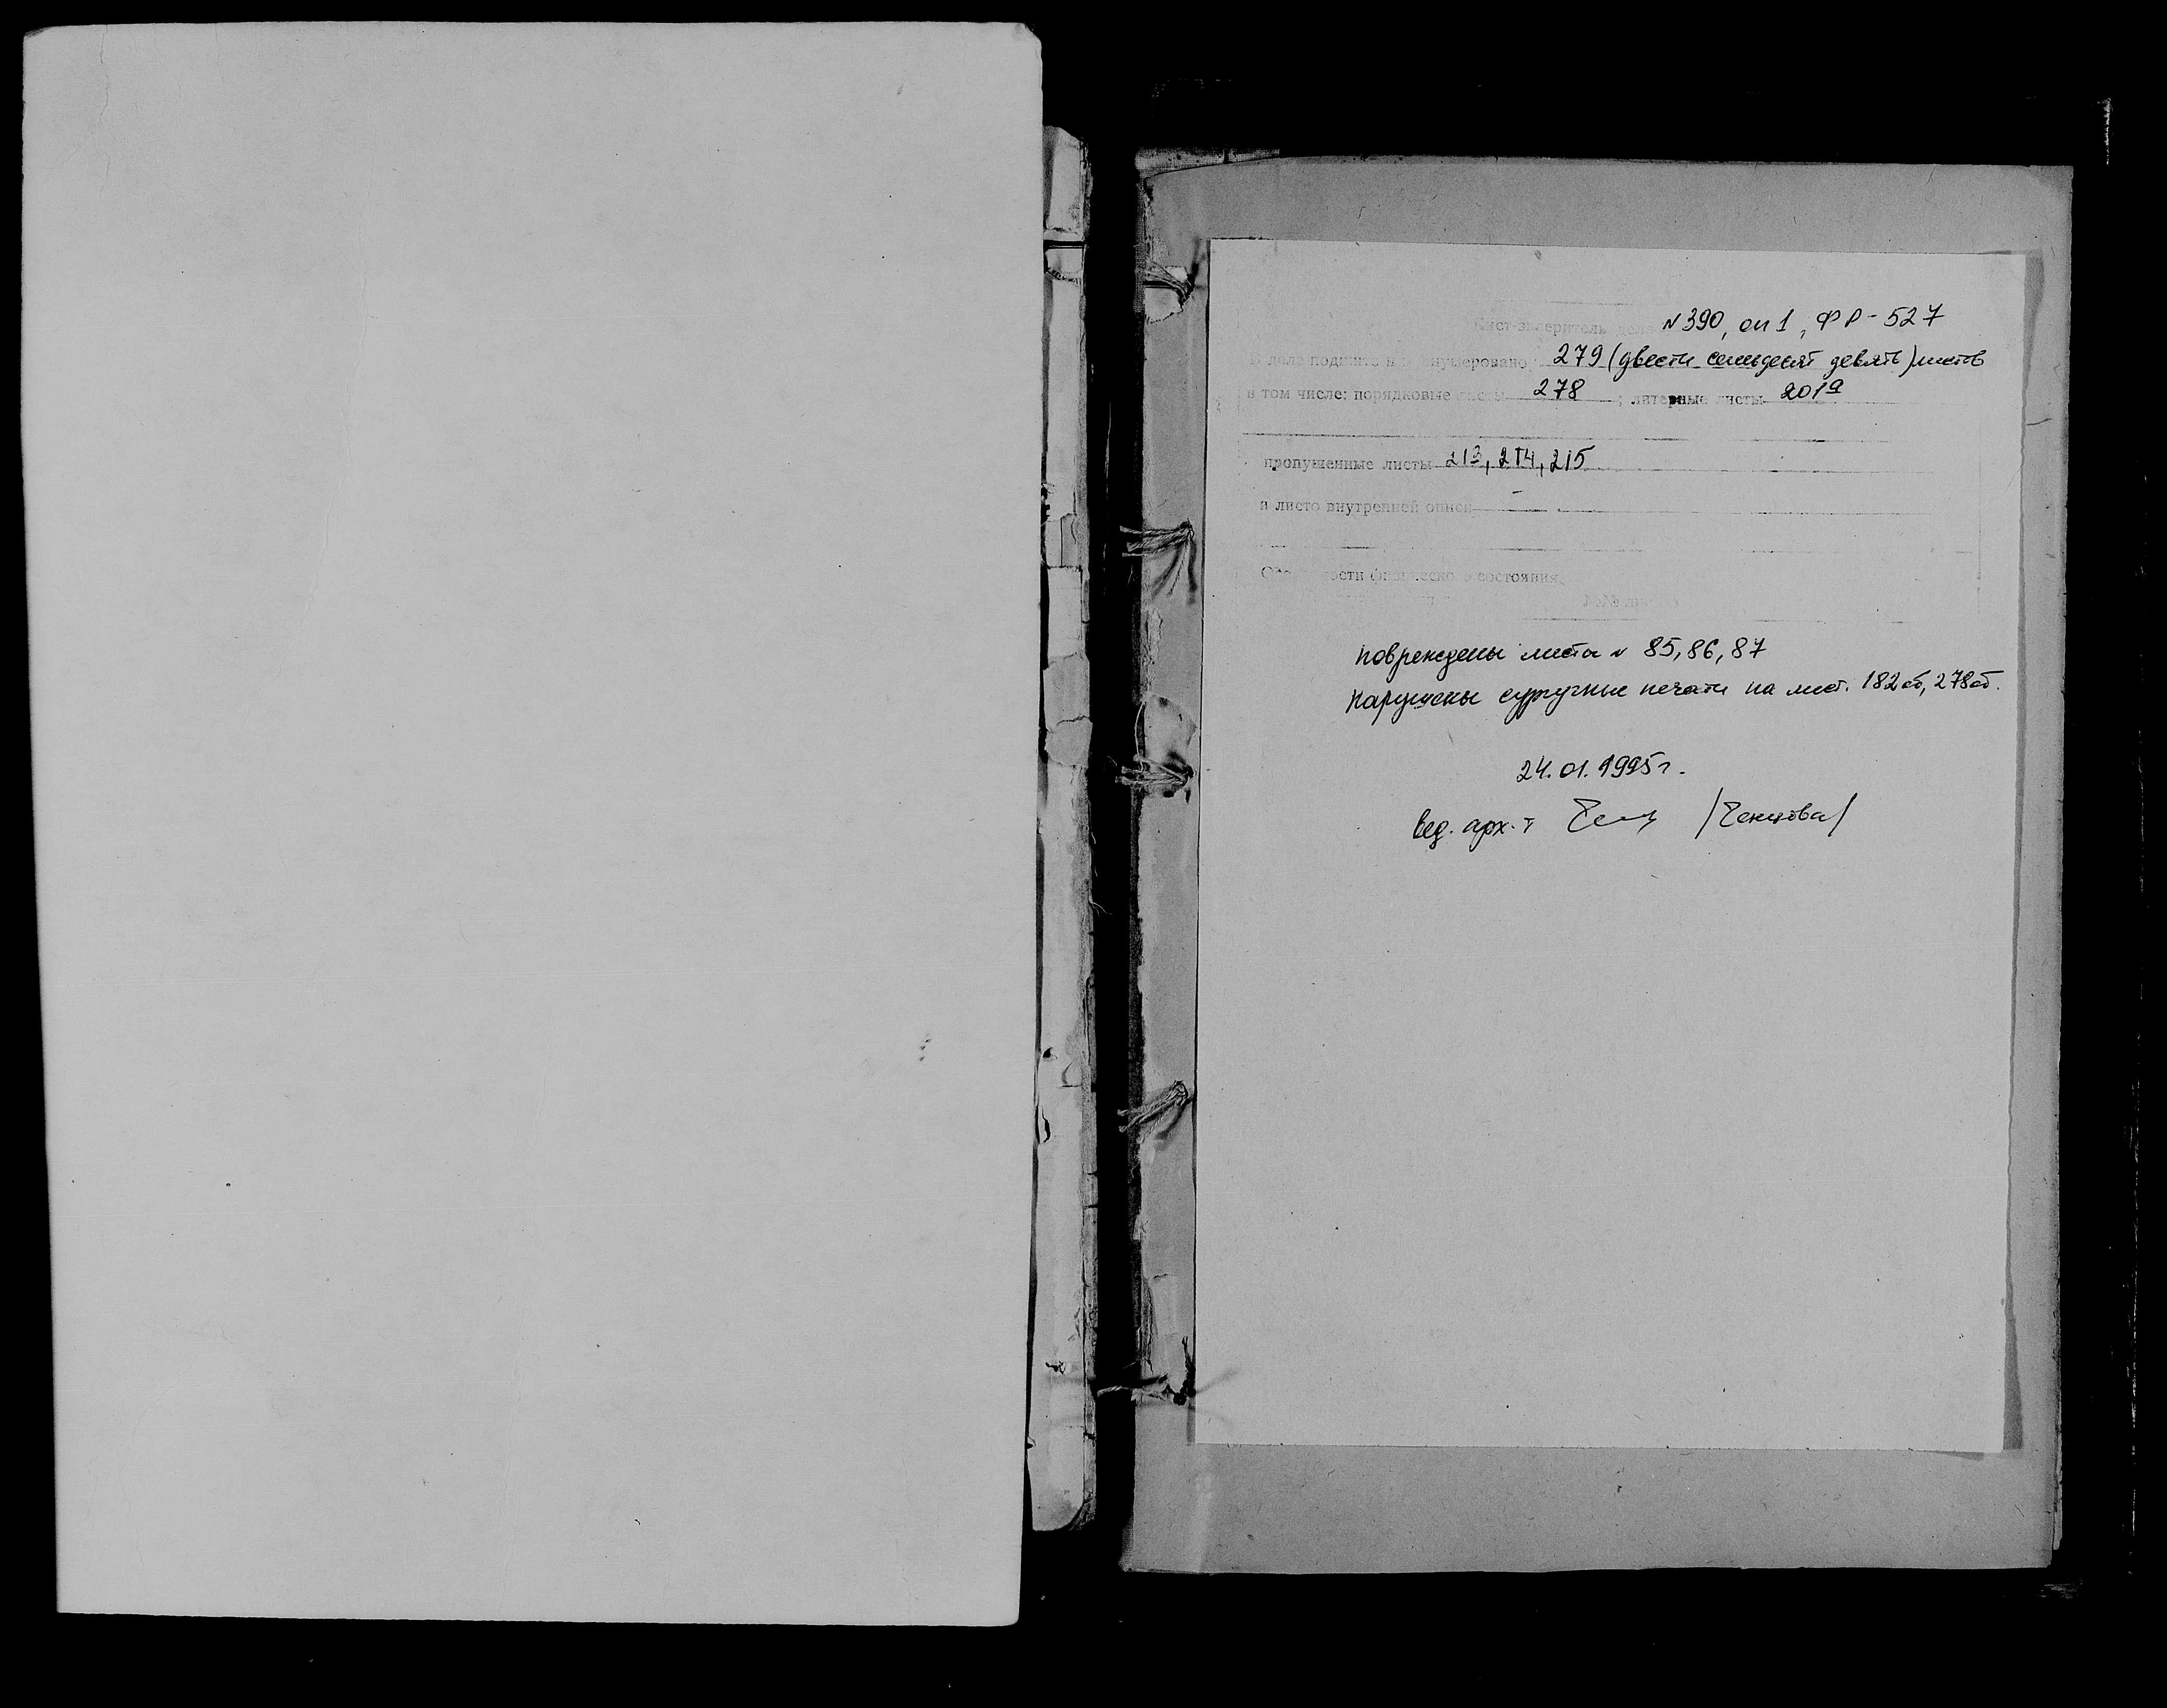 Лист-заверитель дела N 390, оп 1, Ф Р-527
В деле подшито и пронумеровано 279 (двести семьдесят девять) листов
в том числе: порядковые листы 278; литерные листы 201а
пропущенные листы 213, 214, 215
и листо внутренней описи –
Особенности физического состояния
повреждены листа N 85, 86, 87
нарушены сургучные печати на лист. 182об, 278об.
24.01.1995г.
вед. арх-т /Ченцова/